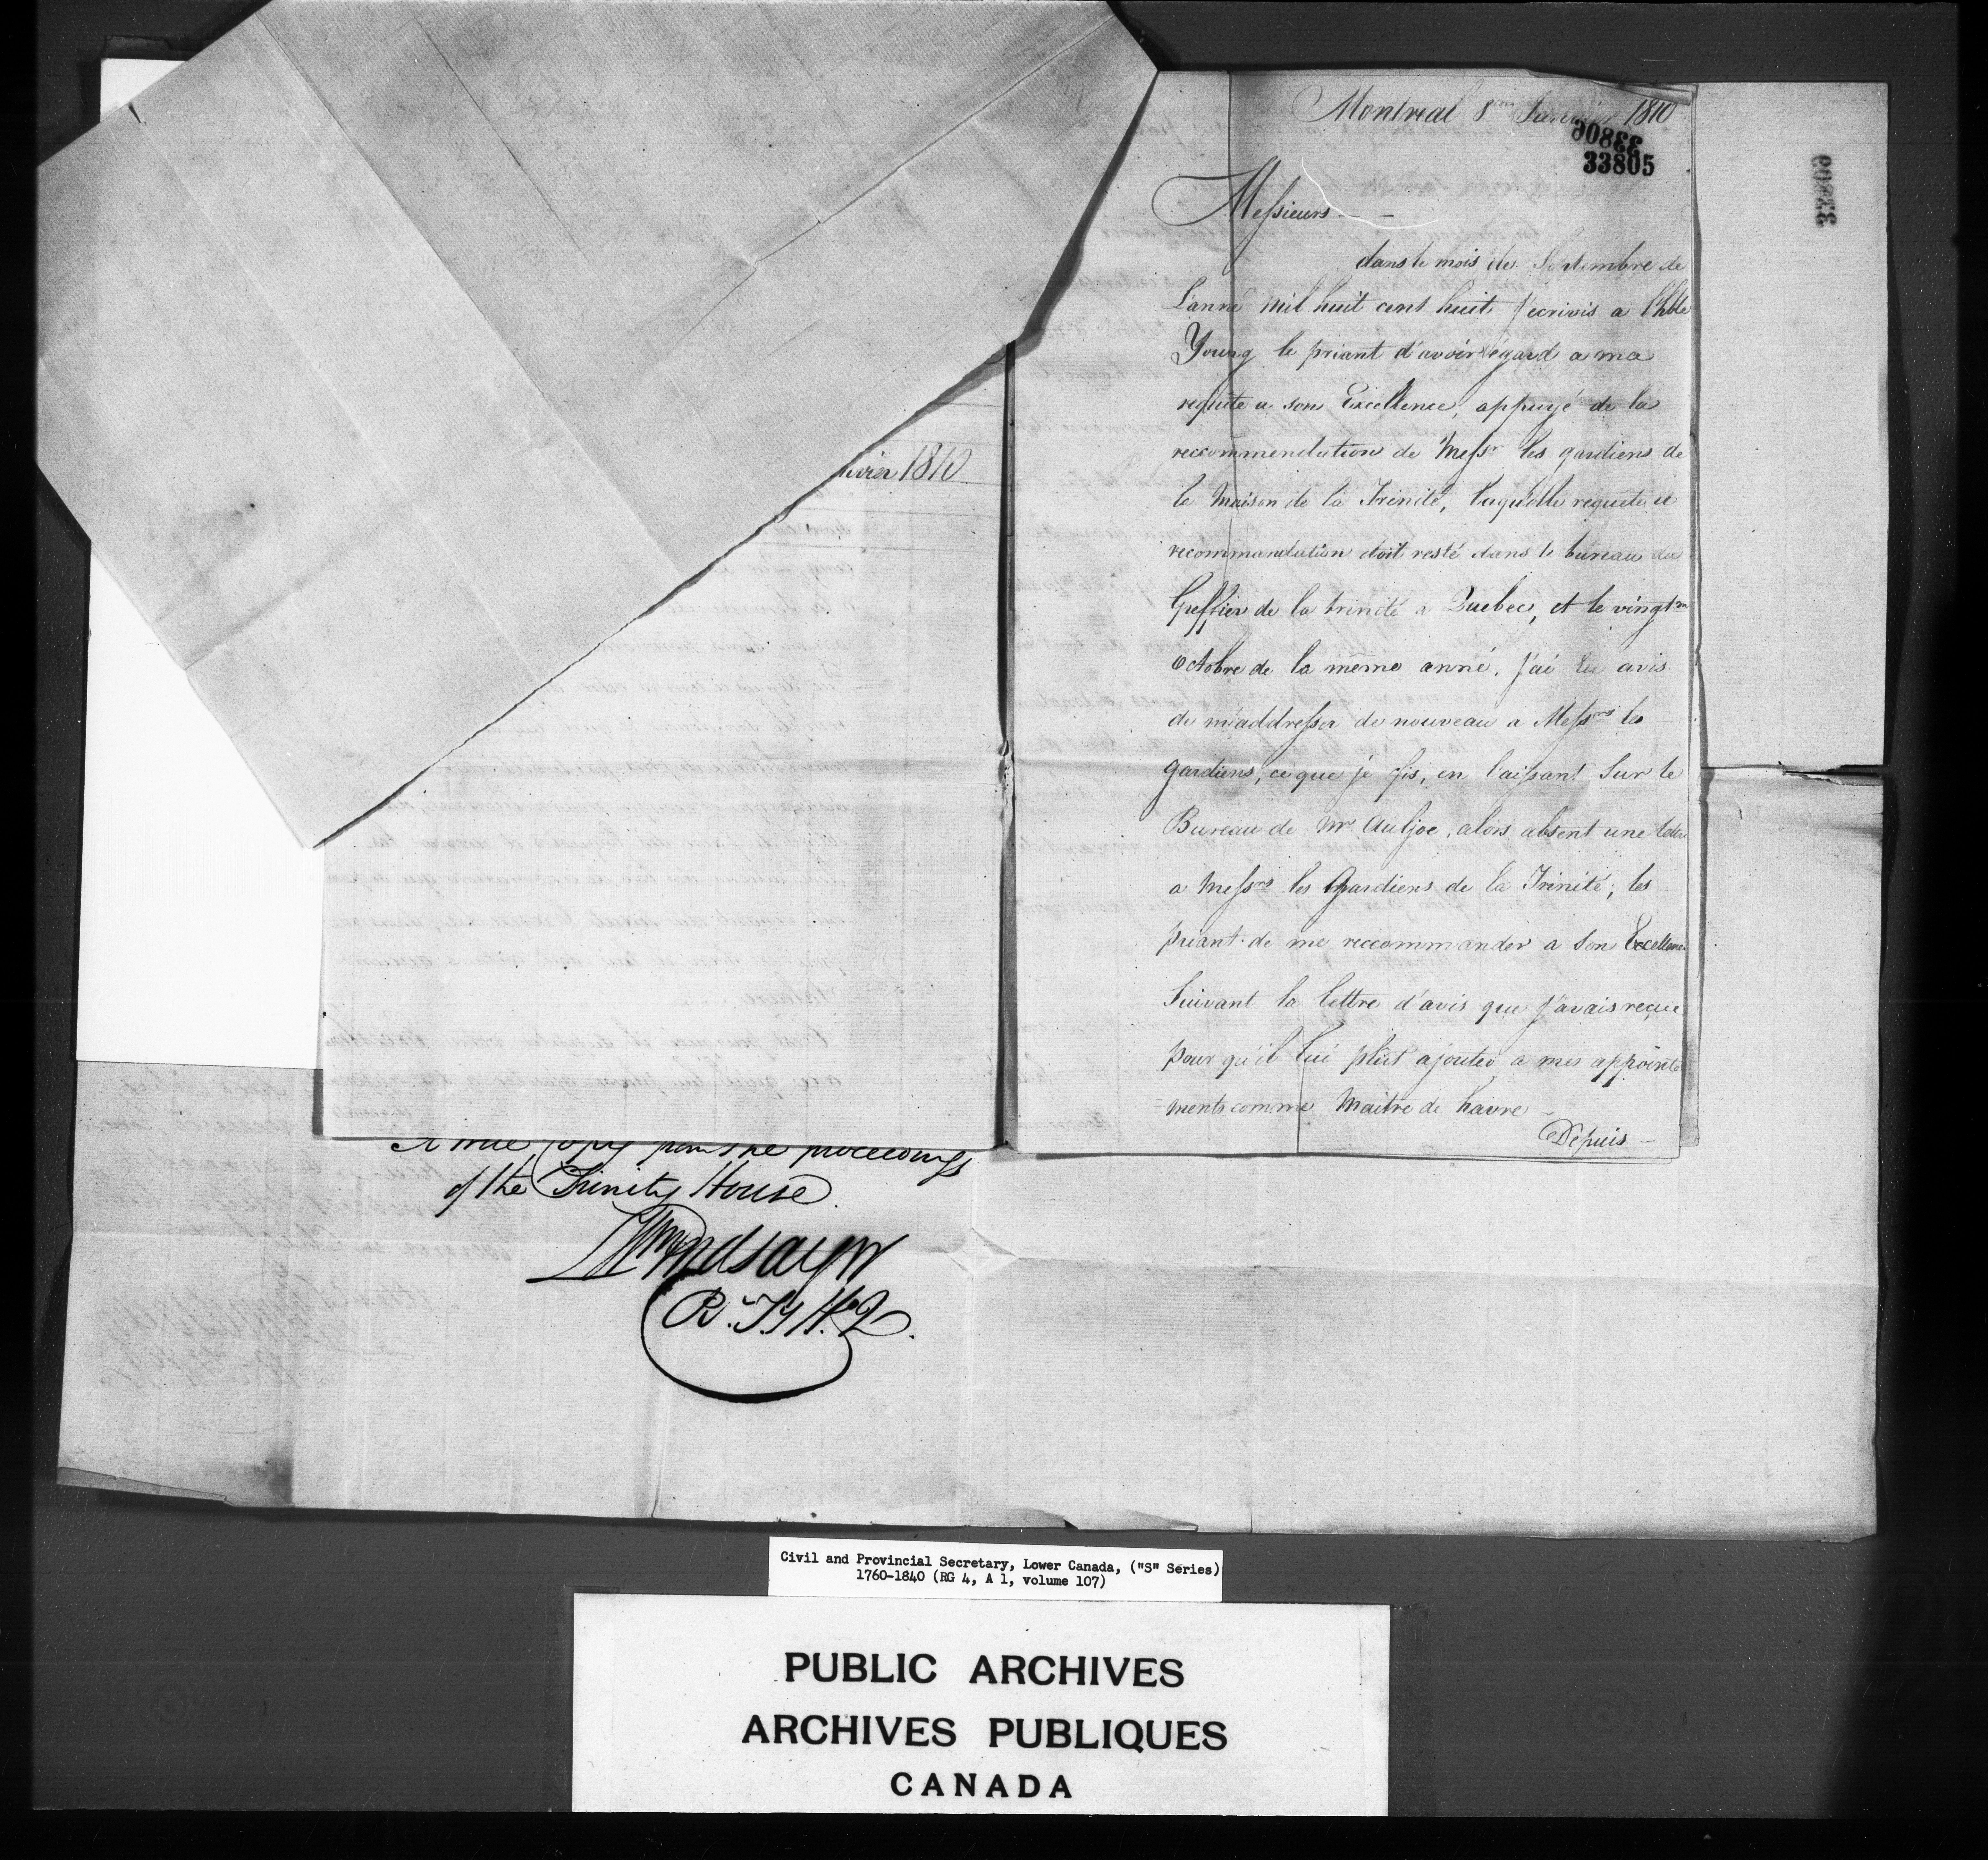 Montreal 8 Janvier 1810
33806
33805
33809
Messieurs
dans le mois de Septembre de
L'anné mil huit cent huit j'ecrivis a l'hble
Young le priant d'avoir égard a ma
requête a son Excellence, appuyé de la
reccommendation de Messrs les gardiens de
la Maison de la Trinité, laquelle requete et
recommandation doit resté dans le bureau du
Greffier de la trinité a Quebec, et le vingtme
Octobre de la même anné, j'ai eu avis
de m'addresser de nouveau a Messrs les
gardiens, ce que je fis, en laissant sur le
Bureau de Mr Auljoe, alors absent une lettre
a Messrs les Gardiens de la Trinité, les
priant de me reccommander a son Excellence
Suivant la lettre d'avis que j'avais reçue
pour qu'il lui plût ajouter a mes appointe
=ments comme Maitre de havre
Depuis
nvier 1810
A true Copy from the proceedings
of the Trinity House
Wm Lindsay Jr
Rr. T.y H.e Q.
Civil and Provincial Secretary, Lower Canada, ("S" Series)
1760-1840 (RG 4, A 1, volume 107)
PUBLIC ARCHIVES
ARCHIVES PUBLIQUES
CANADA